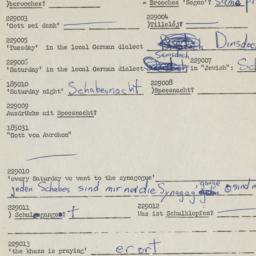 )berooches? = Brooches 'Segen'? 
229003 229004
'Gott sei dank' )Tilleloj?
229005
'Tuesday' in the local German dialect Dinsdach
229006 229007
'Saturday' in the local German dialect in "Jewish":
185010 229008
'Saturday night' Schabesnacht )Speesnacht?
229009
Ausdrücke mit Speesnacht?
185031
"Gott von Avrohom"
229010
'every Saturday we went to the synagogue'
jeden Schabes sind mir nor die Synagog
229011 229012
Was ist Schulklopfen?
229013
'the khazn is praying' er ort